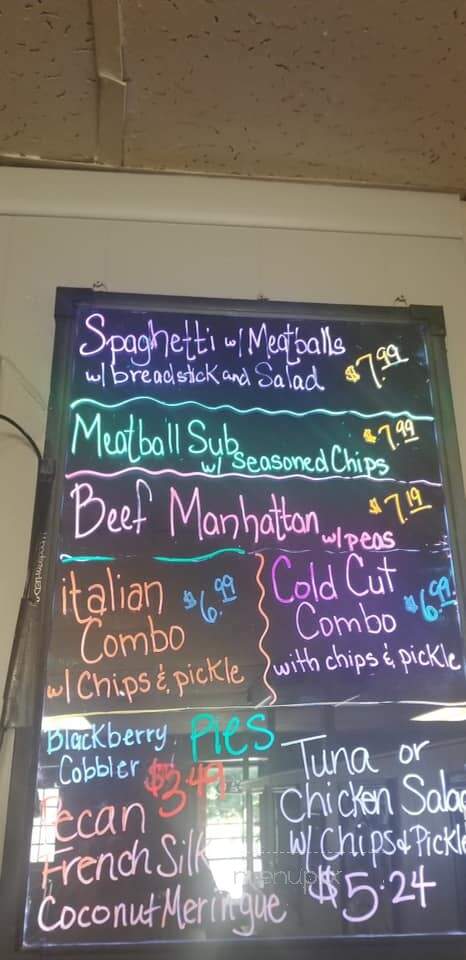 Spaghetti w/ Meatballs
w/ breadstick and Salad $7.99
Meatball Sub $7.99
w/ Seasoned Chips
Beef Manhattan $7.19
w/ peas
italian $6.99
Combo
w/ Chips & pickle
Cold Cut
Combo $6.99
with chips & pickle
Blackberry
Cobbler
Pies
$3.49
Pecan
French Silk
Coconut Meringue
Tuna or
Chicken Salad
w/ Chips & Pickle
$5.24
menupix